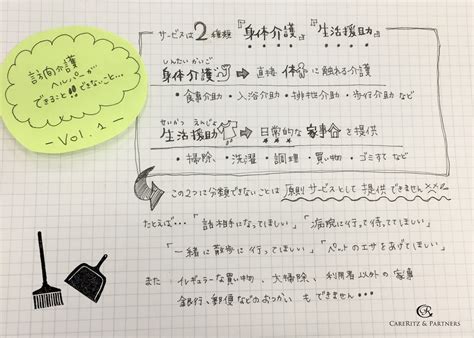 訪問介護
ヘルパーが
できること!!できないこと…
－Vol.1－
サービスは2種類『身体介護』『生活援助』
しんたいかいご
身体介護 → 直接 体に触れる介護
・食事介助・入浴介助・排泄介助・歩行介助 など
せいかつ えんじょ
生活援助 → 日常的な家事を提供
・掃除、・洗濯、・調理・買い物・ゴミすて など
この2つに分類できないことは 原則サービスとして 提供できません
たとえば…「話相手になってほしい」「病院に行って待っててほしい」
「一緒に散歩に行ってほしい」「ペットのエサをあげてほしい」
また イレギュラーな買い物、大掃除、利用者以外の家事
銀行、郵便などのおつかい もできません…
CR
CARERITZ & PARTNERS